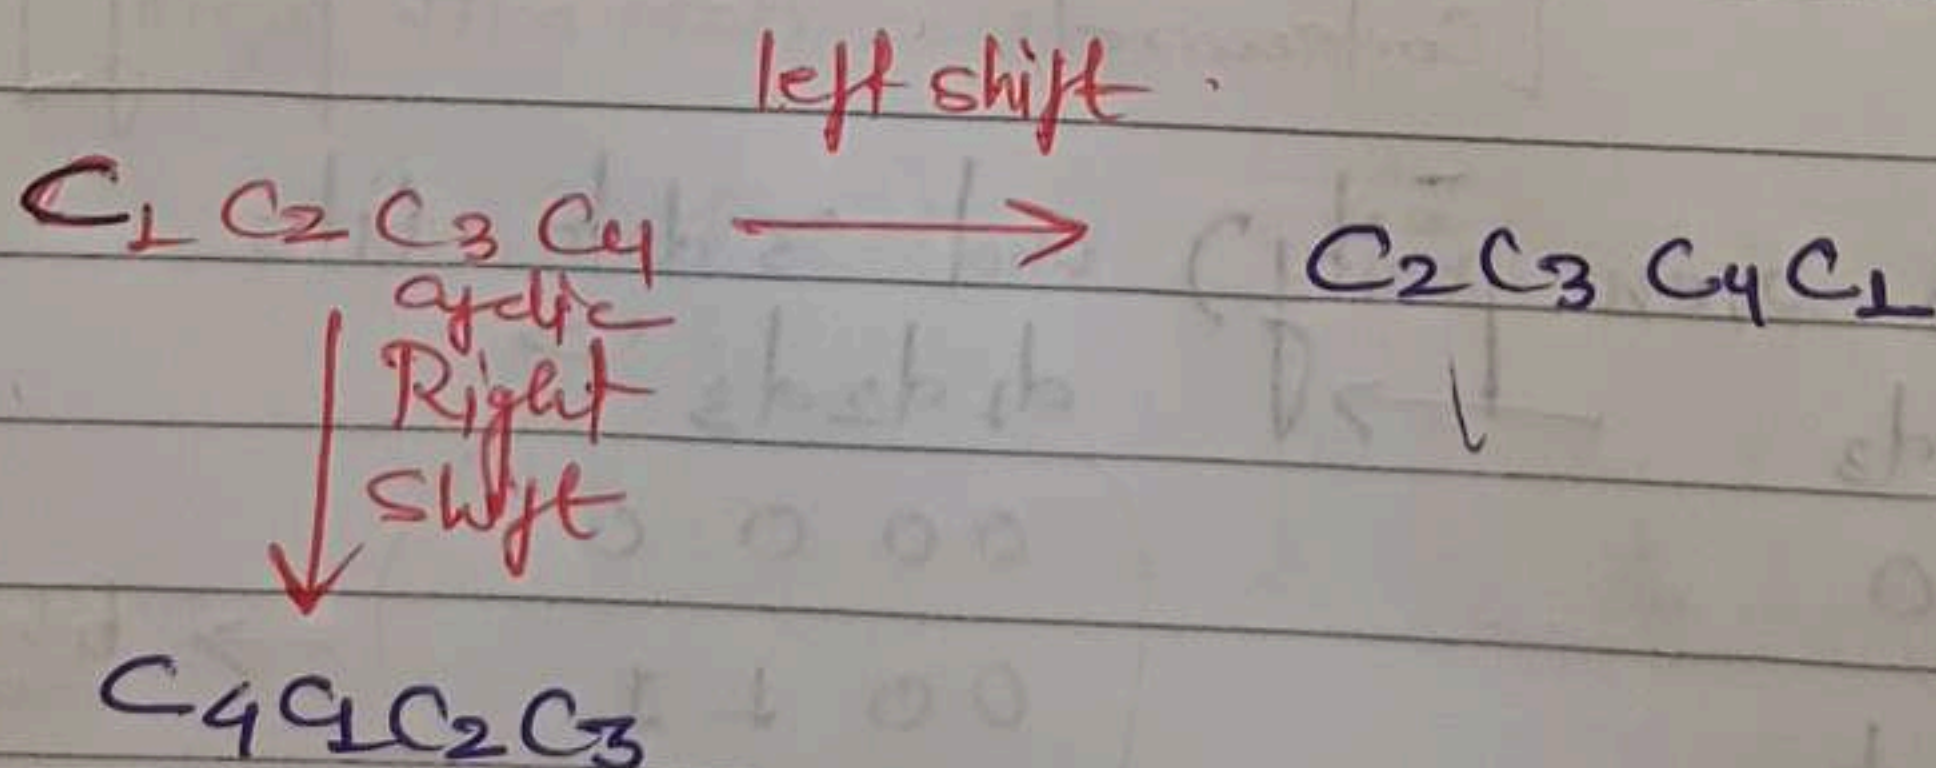 left shift.
C1 C2 C3 C4 → C2 C3 C4 C1
cyclic
Right
Shift
C4 C1 C2 C3